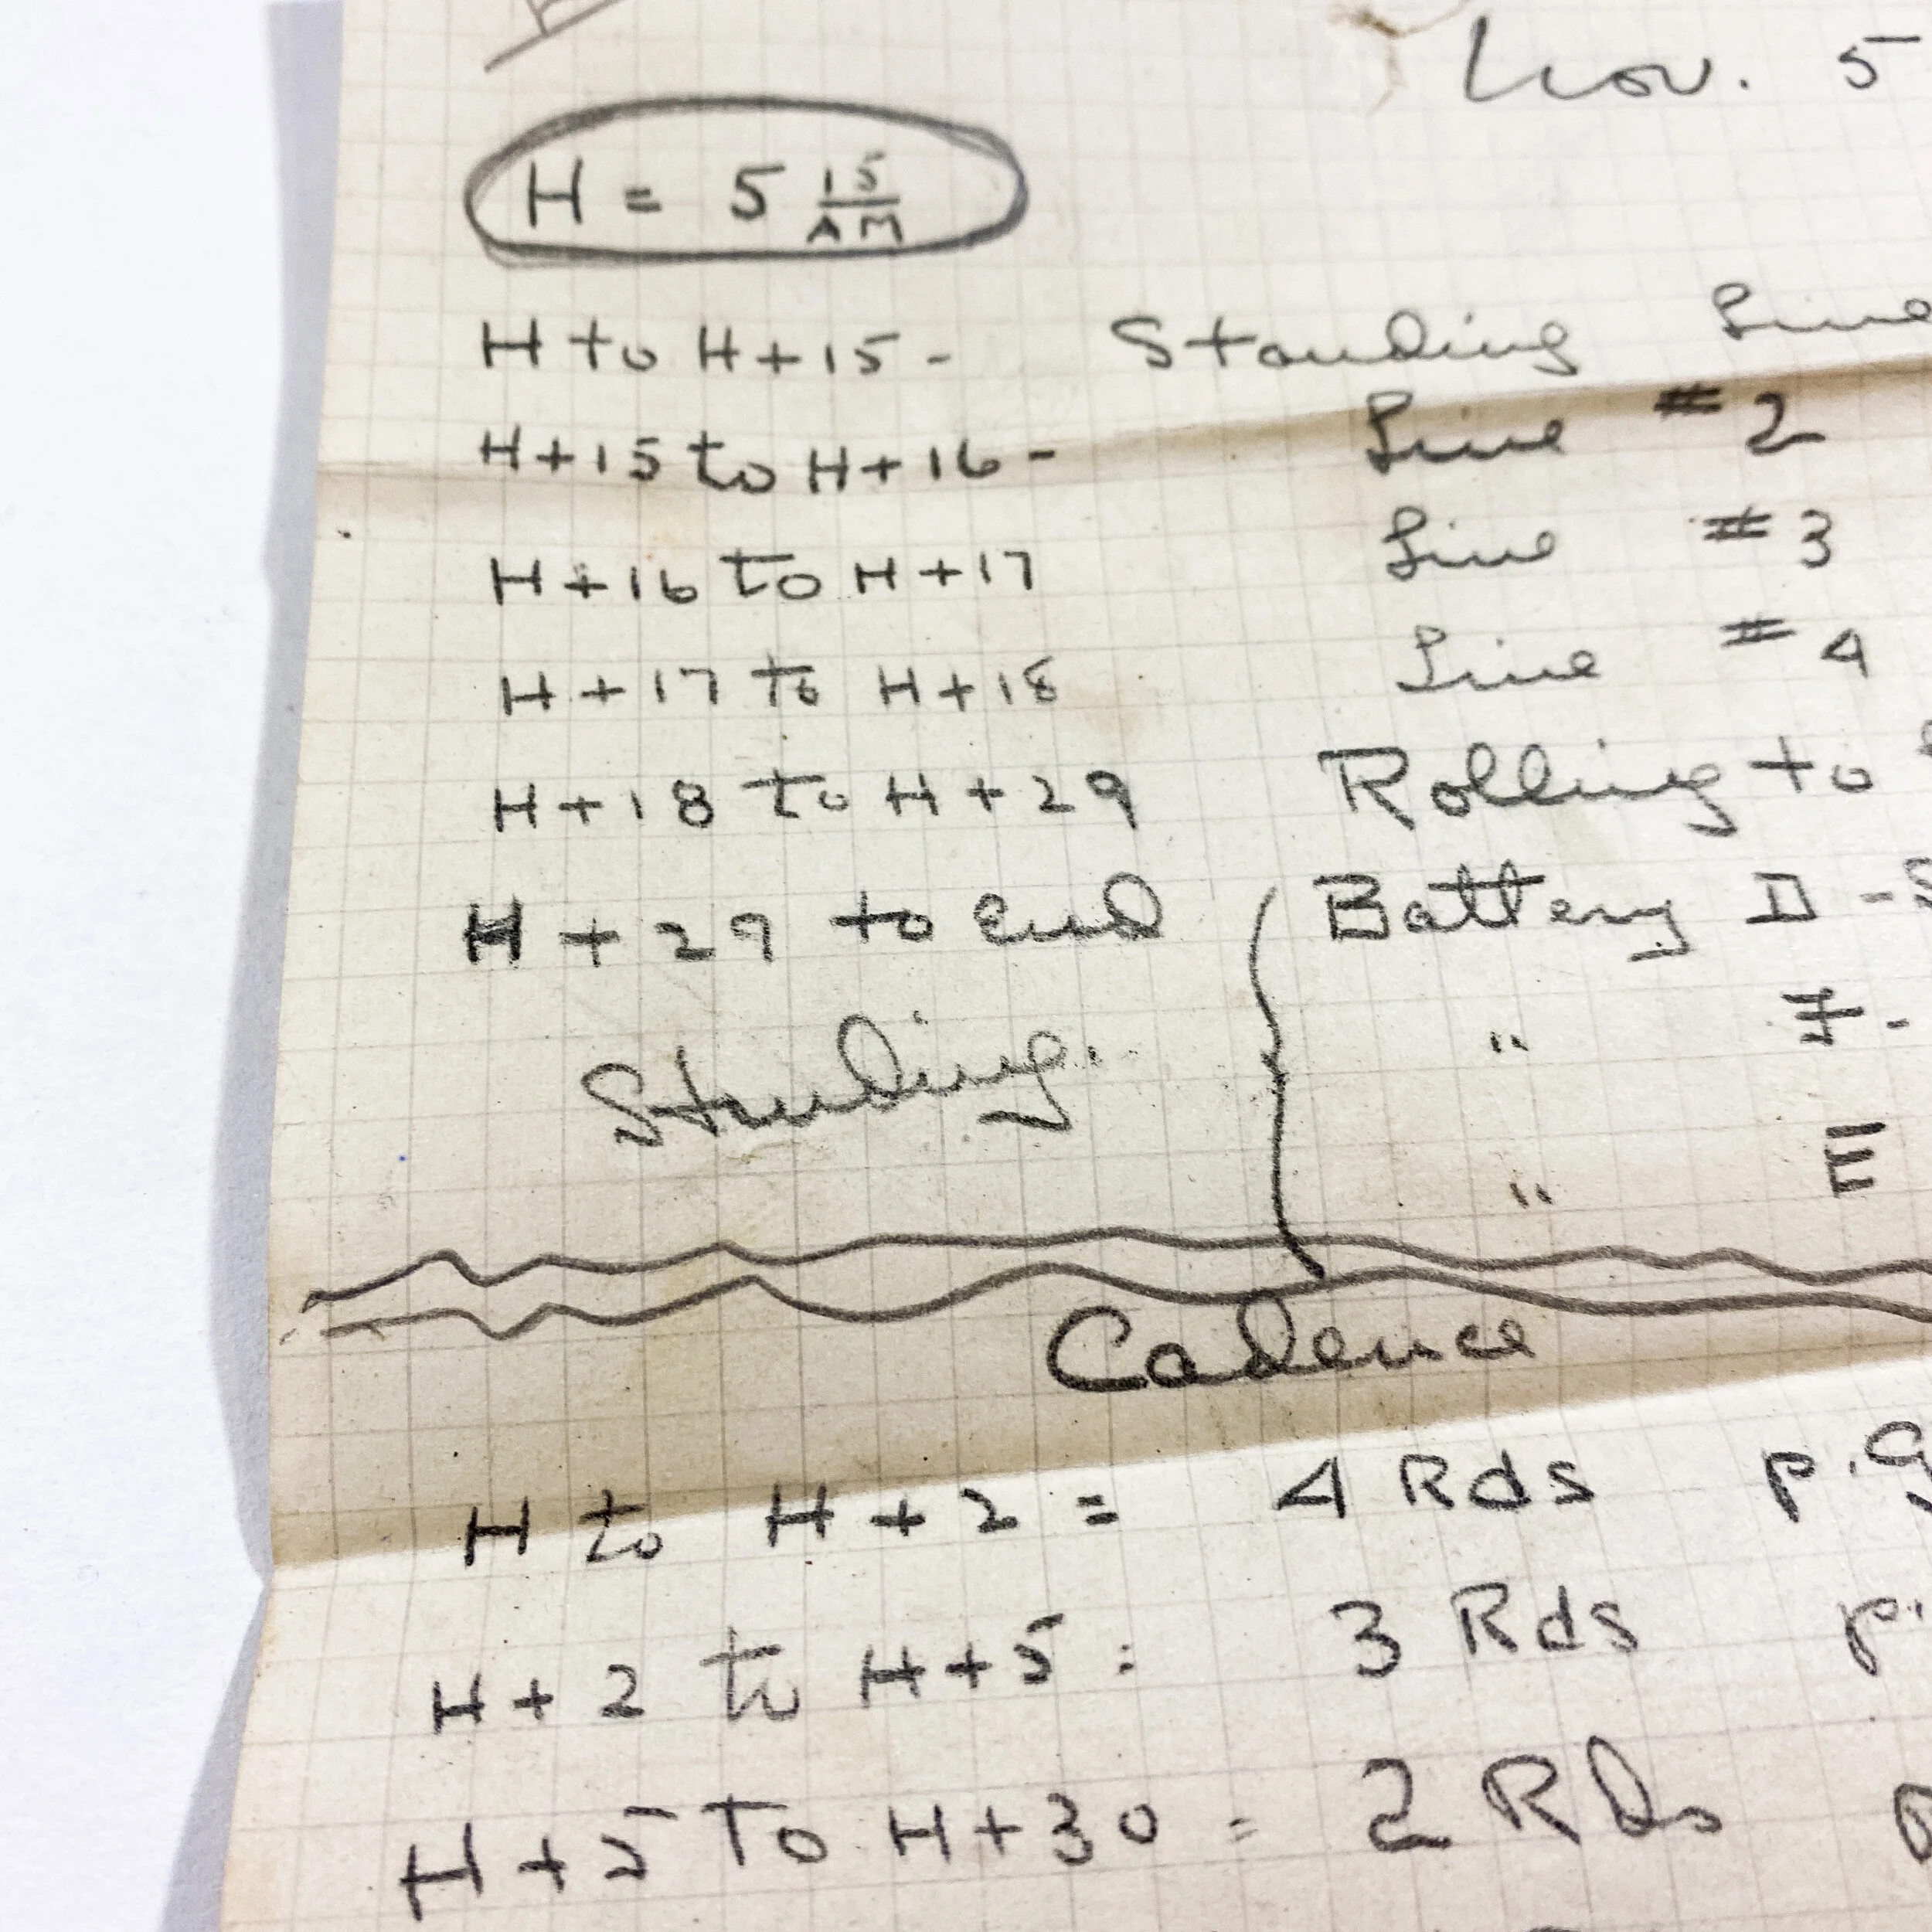 Nov. 5
H = 5 15/AM
H to H+15 - Standing Line
H+15 to H+16 - Line #2
H+16 to H+17 Line #3
H+17 to H+18 Line #4
H+18 to H+29 Rolling to
H+29 to End Battery D -
Standing. " F -
" E
Cadence
H to H+2 = 4 Rds p.g
H+2 to H+5 : 3 Rds p.
H+5 to H+30 = 2 Rds